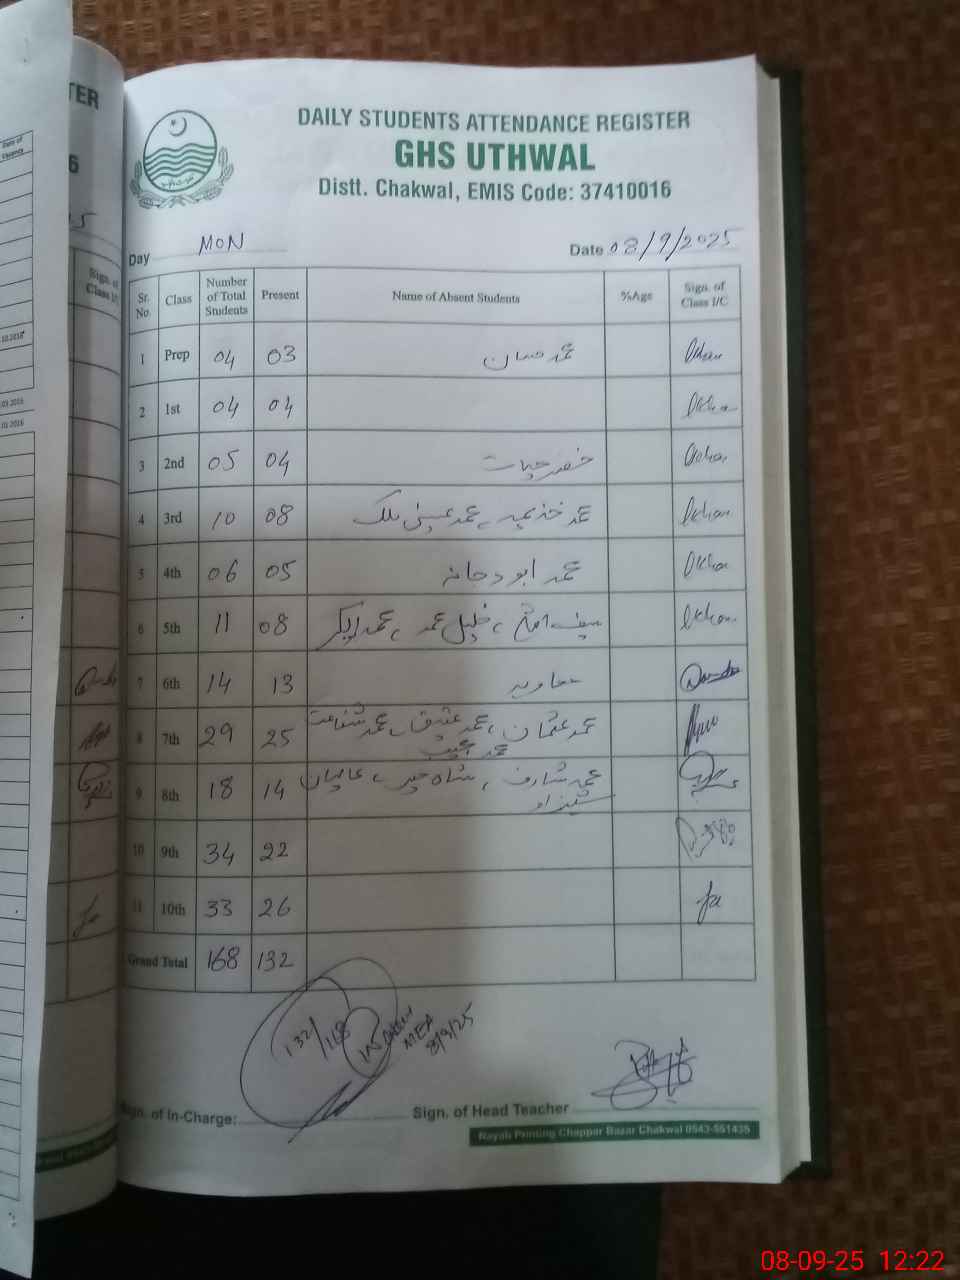 TER
DAILY STUDENTS ATTENDANCE REGISTER
GHS UTHWAL
Distt. Chakwal, EMIS Code: 37410016
Day MON Date 08/9/2025
Sr. No. Class Number of Total Students Present Name of Absent Students %Age Sign. of Class I/C
1 Prep 04 03 محمد حسان
2 1st 04 04
3 2nd 05 04 خضر حیات
4 3rd 10 08 محمد خذیمہ، محمد عیسیٰ ملک
5 4th 06 05 محمد ابودجانہ
6 5th 11 08 خلیل محمد، محمد
7 6th 14 13 معاویہ
8 7th 29 25 محمد عثمان، محمد عتیق، محمد
محمد
9 8th 18 14 محمد شارف، شاہ میر،
10 9th 34 22
11 10th 33 26
Grand Total 168 132
132/168
MEA
8/9/25
Sign. of In-Charge: Sign. of Head Teacher
Nayab Printing Chappar Bazar Chakwal 0543-551435
08-09-25 12:22